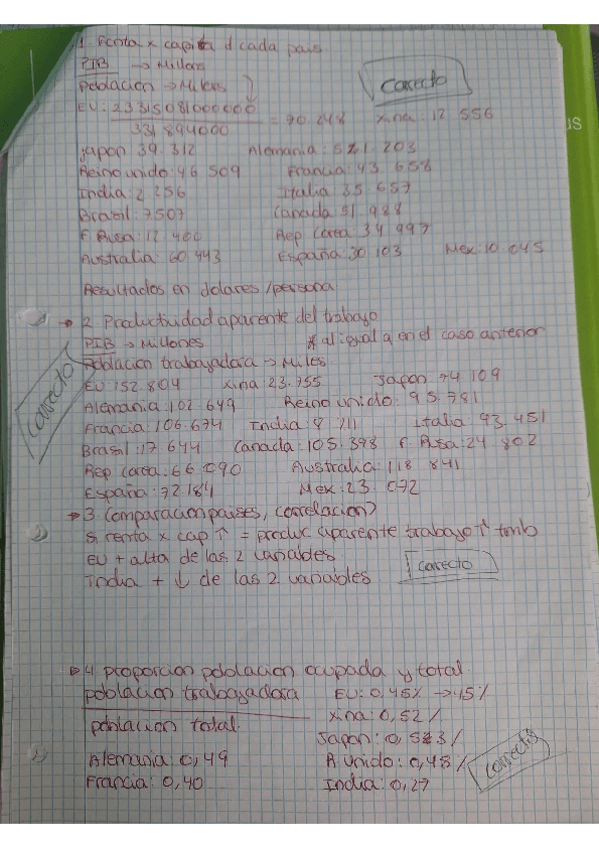 1. Renta x capita d cada pais
PIB → Millons
Población → Miles
Correcto
EU: 23315081000000 / 331894000 = 70.248 Xina: 12 556
Japon 39.312 Alemania: 51.203
Reino unido: 46 509 Francia: 43.658
India: 2 256 Italia 35.657
Brasil: 7507 Canada 51.988
F. Rusa: 12.400 Rep Corea: 34 997
Australia: 60.443 España: 30 103 Mex: 10.045
Resultados en dolares/persona
→ 2. Productividad aparente del trabajo
PIB → Millones * al igual q en el caso anterior
Población trabajadora → Miles
Correcto
EU: 152.804 Xina 23.755 Japon 74 109
Alemania: 102.649 Reino unido: 95.781
Francia: 106.674 India 8 711 Italia 93.451
Brasil: 17.644 Canada: 105.398 F. Rusa: 24 802
Rep Corea: 66.090 Australia: 118 841
España: 72.184 Mex: 23.072
→ 3 Comparación paises, (correlacion?)
Si renta x cap ↑ = produc aparente trabajo ↑ tmb
EU + alta de las 2 variables
India + ↓ de las 2 variables
Correcto
→ 4 proporcion poblacion ocupada y total
población trabajadora EU: 0,45% → 45%
población total
Xina: 0,52 /
Japon: 0,53 /
Alemania: 0,49 R unido: 0,48 /
Francia: 0,40 India: 0,27
Correcto
us